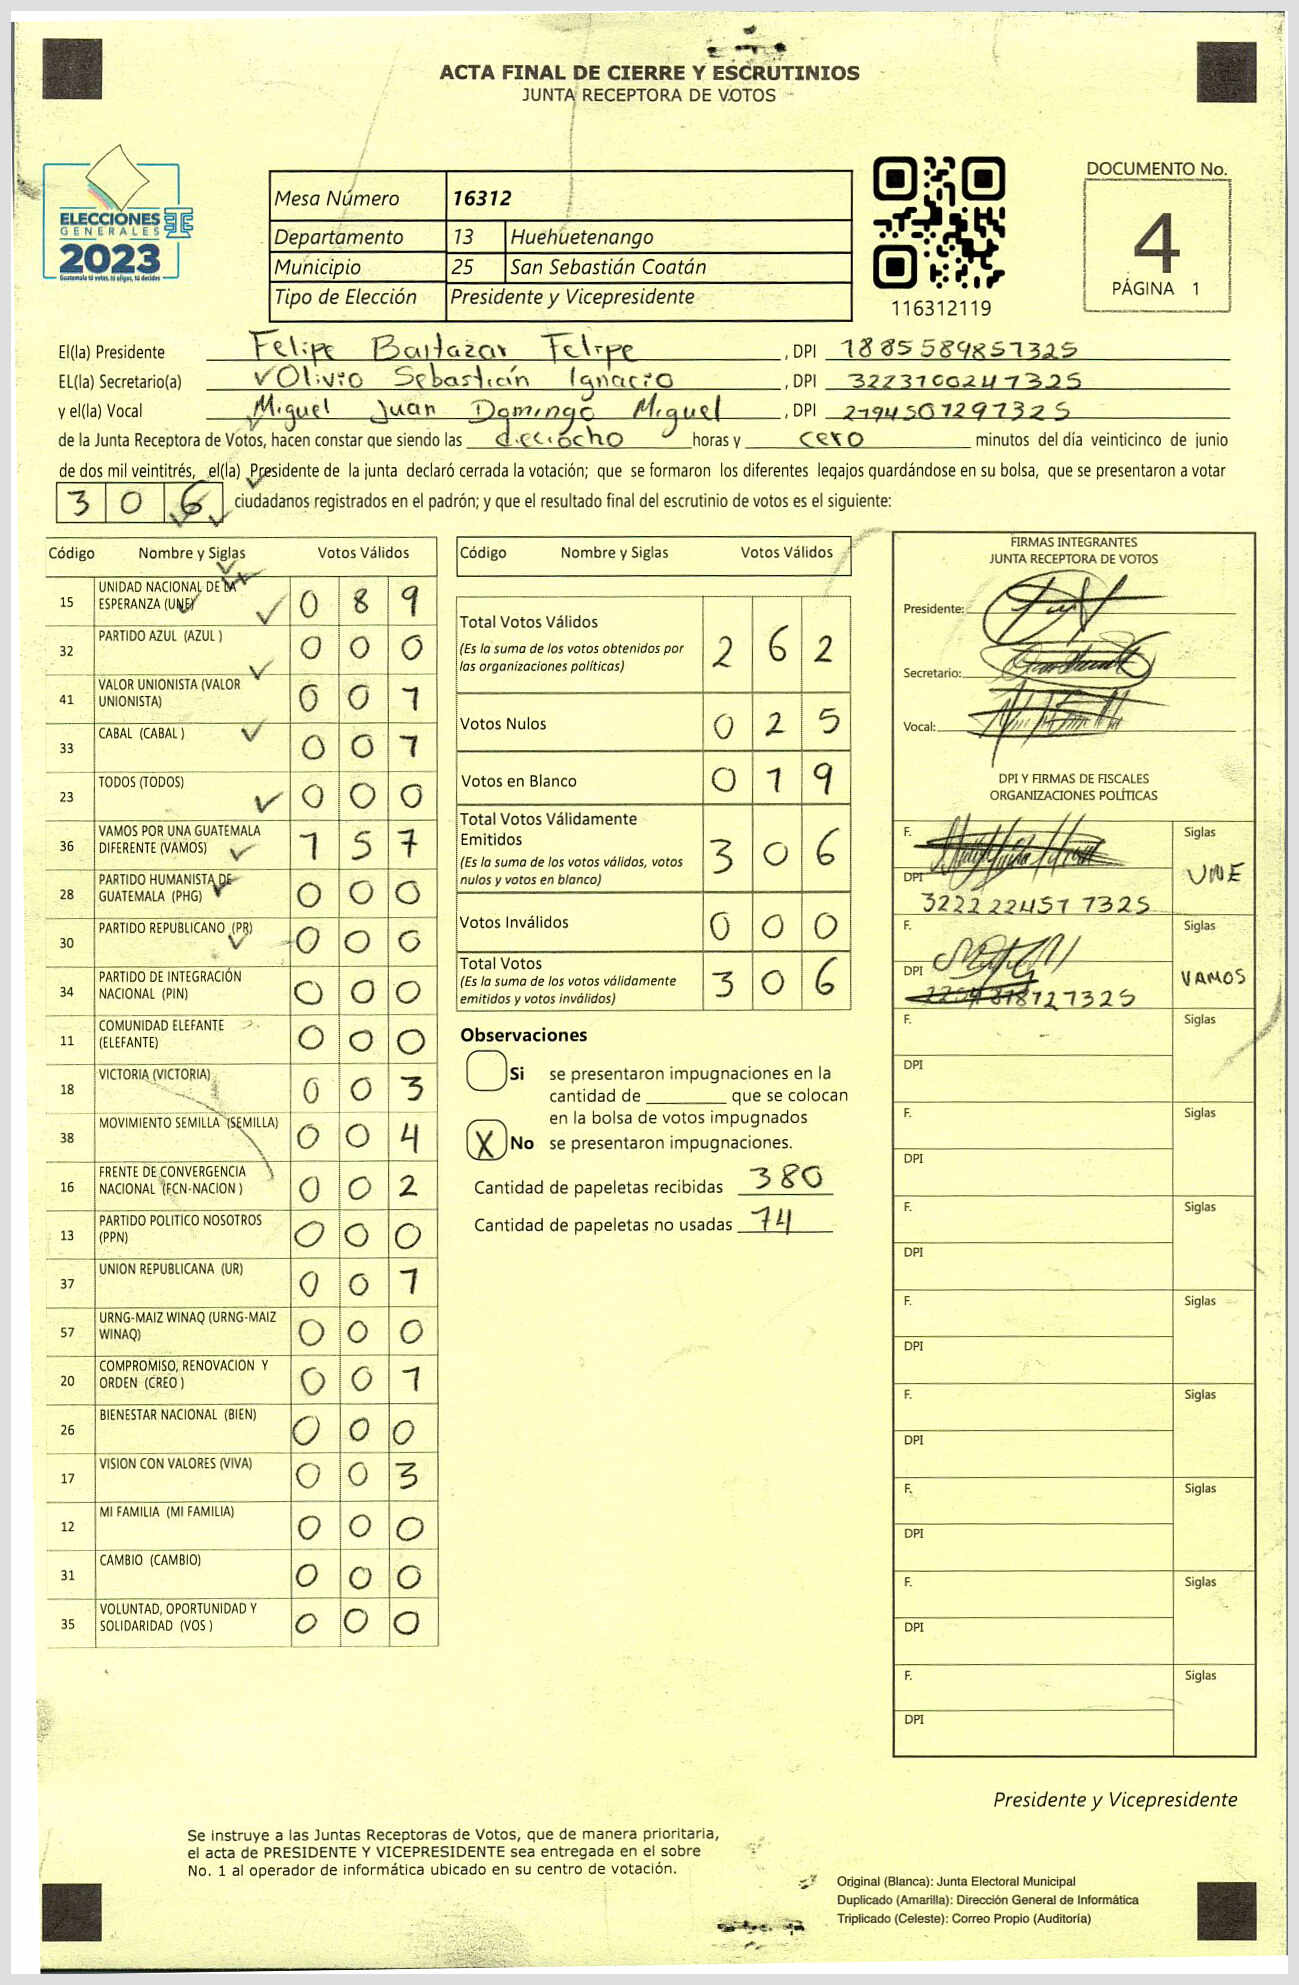 ACTA FINAL DE CIERRE Y ESCRUTINIOS
JUNTA RECEPTORA DE VOTOS
ELECCIONES
GENERALES
2023
Guatemala tú votas, tú eliges, tú decides
Mesa Número 16312
Departamento 13 Huehuetenango
Municipio 25 San Sebastián Coatán
Tipo de Elección Presidente y Vicepresidente
116312119
DOCUMENTO No.
4
PÁGINA 1
El(la) Presidente Felipe Baltazar Felipe, DPI 1885589857325
EL(la) Secretario(a) Olivio Sebastián Ignacio, DPI 3223100247325
y el(la) Vocal Miguel Juan Domingo Miguel, DPI 2794507297325
de la Junta Receptora de Votos, hacen constar que siendo las dieciocho horas y cero minutos del día veinticinco de junio
de dos mil veintitrés, el(la) Presidente de la junta declaró cerrada la votación; que se formaron los diferentes legajos guardándose en su bolsa, que se presentaron a votar
306 ciudadanos registrados en el padrón; y que el resultado final del escrutinio de votos es el siguiente:
Código Nombre y Siglas Votos Válidos
15 UNIDAD NACIONAL DE LA ESPERANZA (UNE) 0 8 9
32 PARTIDO AZUL (AZUL ) 0 0 0
41 VALOR UNIONISTA (VALOR UNIONISTA) 0 0 1
33 CABAL (CABAL ) 0 0 1
23 TODOS (TODOS) 0 0 0
36 VAMOS POR UNA GUATEMALA DIFERENTE (VAMOS) 1 5 7
28 PARTIDO HUMANISTA DE GUATEMALA (PHG) 0 0 0
30 PARTIDO REPUBLICANO (PR) 0 0 0
34 PARTIDO DE INTEGRACIÓN NACIONAL (PIN) 0 0 0
11 COMUNIDAD ELEFANTE (ELEFANTE) 0 0 0
18 VICTORIA (VICTORIA) 0 0 3
38 MOVIMIENTO SEMILLA (SEMILLA) 0 0 4
16 FRENTE DE CONVERGENCIA NACIONAL (FCN-NACION ) 0 0 2
13 PARTIDO POLITICO NOSOTROS (PPN) 0 0 0
37 UNION REPUBLICANA (UR) 0 0 1
57 URNG-MAIZ WINAQ (URNG-MAIZ WINAQ) 0 0 0
20 COMPROMISO, RENOVACION Y ORDEN (CREO ) 0 0 1
26 BIENESTAR NACIONAL (BIEN) 0 0 0
17 VISION CON VALORES (VIVA) 0 0 3
12 MI FAMILIA (MI FAMILIA) 0 0 0
31 CAMBIO (CAMBIO) 0 0 0
35 VOLUNTAD, OPORTUNIDAD Y SOLIDARIDAD (VOS ) 0 0 0
Código Nombre y Siglas Votos Válidos
Total Votos Válidos 2 6 2
(Es la suma de los votos obtenidos por
las organizaciones políticas)
Votos Nulos 0 2 5
Votos en Blanco 0 1 9
Total Votos Válidamente
Emitidos 3 0 6
(Es la suma de los votos válidos, votos
nulos y votos en blanco)
Votos Inválidos 0 0 0
Total Votos 3 0 6
(Es la suma de los votos válidamente
emitidos y votos inválidos)
Observaciones
Si se presentaron impugnaciones en la
cantidad de ________ que se colocan
en la bolsa de votos impugnados
X No se presentaron impugnaciones.
Cantidad de papeletas recibidas 380
Cantidad de papeletas no usadas 74
FIRMAS INTEGRANTES
JUNTA RECEPTORA DE VOTOS
Presidente:
Secretario:
Vocal:
DPI Y FIRMAS DE FISCALES
ORGANIZACIONES POLÍTICAS
F. Siglas
UNE
DPI
3222224577325
F. Siglas
VAMOS
DPI
F. Siglas
DPI
F. Siglas
DPI
F. Siglas
DPI
F. Siglas
DPI
F. Siglas
DPI
F. Siglas
DPI
F. Siglas
DPI
F. Siglas
DPI
Presidente y Vicepresidente
Se instruye a las Juntas Receptoras de Votos, que de manera prioritaria,
el acta de PRESIDENTE Y VICEPRESIDENTE sea entregada en el sobre
No. 1 al operador de informática ubicado en su centro de votación.
Original (Blanca): Junta Electoral Municipal
Duplicado (Amarilla): Dirección General de Informática
Triplicado (Celeste): Correo Propio (Auditoría)